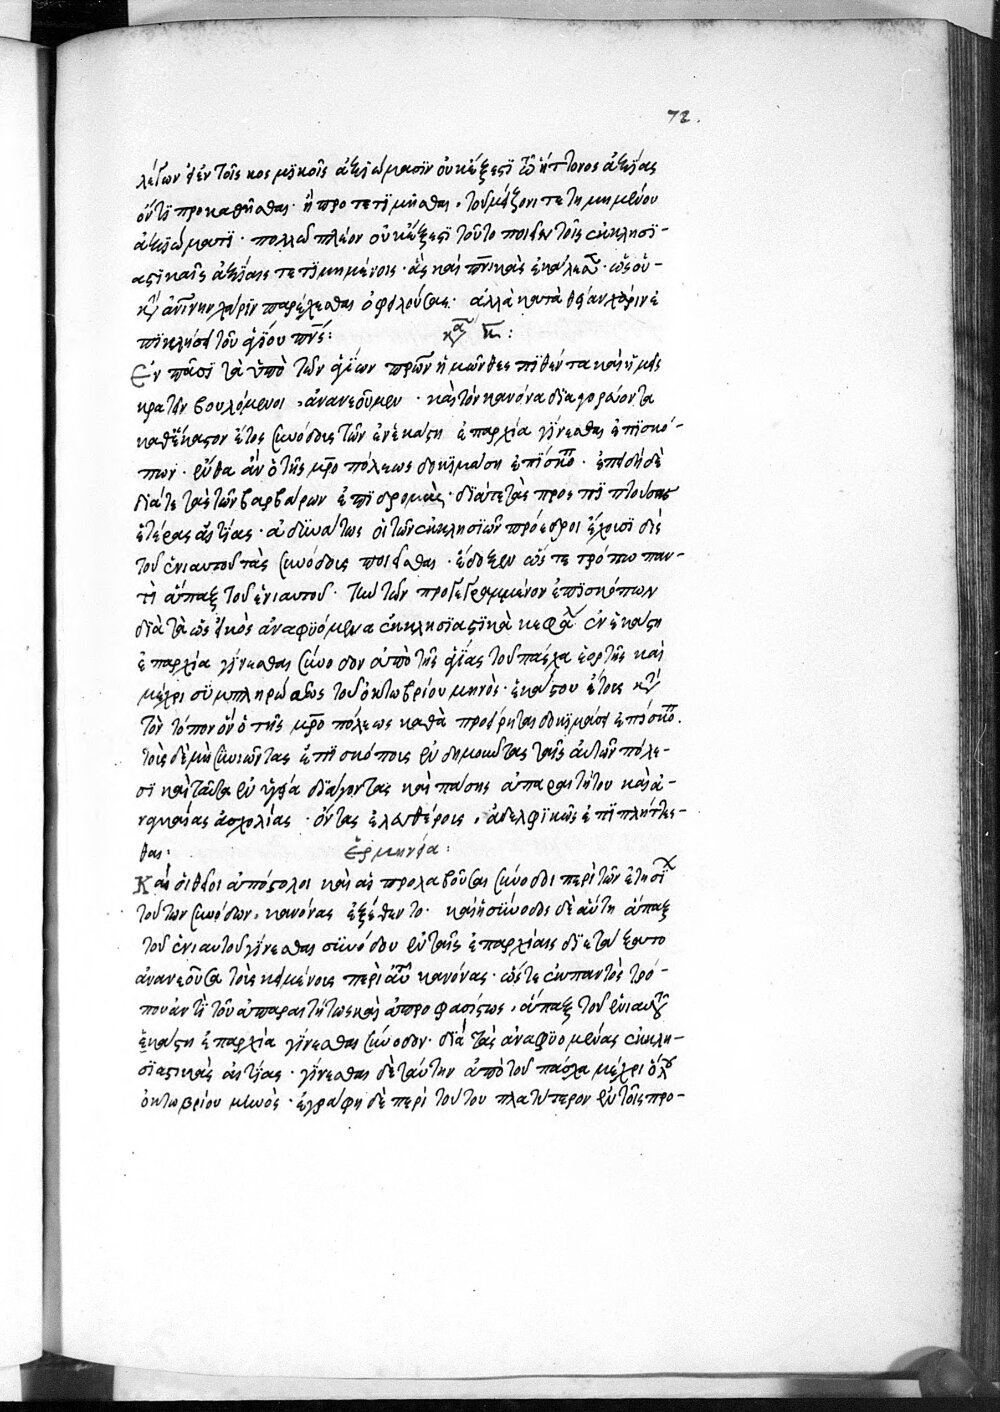 72.
λέγων εἰ ἐν τοῖς κοσμϊκοῖς ἀξϊώμασϊν οὐκ ἔξεστϊ τῶ ἥττονος ἀξϊας
ὄντϊ προκαθῆσθαι· ἢ προτετϊμῆσθαι, τοῦ μείζονι τετιμημένου
ἀξϊώματϊ· πολλῶ πλέον οὐκ ἔξεστϊ τοῦτο ποιεῖν τοῖς ἐκκλησϊ-
αστϊκαῖς ἀξϊαις τετϊμημένοις· ἃς καὶ πνϊκὰς ἐκάλεσαν· ὡς οὐ
κατ' ἀνινην χάρϊν παρέχεσθαι ὀφειλούσας· ἀλλὰ κατὰ θείαν χάριν ἐ
πϊκλήσει τοῦ ἁγίου πνς: καν η:
Ἐν πᾶσϊ τὰ ὑπὸ τῶν ἁγίων πρων ἡμῶν θεσπϊθέντα καὶ ἡμεῖς
κρατεῖν βουλόμενοι, ἀνανεοῦμεν· καὶ τὸν κανόνα διαγορεύοντα
καθ' ἕκαστον ἔτος συνόδους τῶν ἐν ἑκάστη ἐπαρχία γίνεσθαι ἐπϊσκό-
πων· ἔνθα ἂν ὁ τῆς μρο πόλεως δοκϊμάση ἐπϊσκο· ἐπειδὴ δὲ
διά τε τὰς τῶν βαρβάρων ἐπϊδρομὰς· διά τε τὰς προσπϊπτούσας
ἑτέρας αἰτίας· ἀδϊνάτως οἱ τῶν ἐκκλησϊῶν πρόεδροι ἔχουσϊ δὶς
τοῦ ἐνιαυτοῦ τὰς συνόδους ποιεῖσθαι· ἔδοξεν ὥστε τρόπω παν-
τὶ ἅπαξ τοῦ ἐνιαυτοῦ· τὴν τῶν προγεγραμμένον ἐπϊσκόπων
διὰ τὰ ὡς εἰκὸς ἀναφϋόμενα ἐκκλησϊαστϊκὰ κεφα ἐν ἑκάστη
ἐπαρχία γίνεσθαι σύνοδον ἀπὸ τῆς ἁγίας τοῦ πάσχα ἑορτῆς καὶ
μέχρι σϋμπληρώσεως τοῦ ὀκτωβρίου μηνὸς· ἑκάστου ἔτους κατ
τὸν τόπον ὃν ὁ τῆς μρο πόλεως καθὰ προείρηται δοκϊμάσει ἐπϊσκο.
τοὺς δὲ μὴ συνιῶντας ἐπϊσκόπους ἐνδημοῦντας ταῖς αὐτῶν πόλε-
σϊ καὶ ταῦτα ἐν ὑγεία δϊάγοντας καὶ πάσης ἀπαραιτήτου καὶ ἀ-
ναγκαίας ἀσχολίας· ὄντας ἐλευθέρους, ἀδελφϊκῶς ἐπϊπλήττεσ-
θαι: Ἑρμηνεία:
Καὶ οἱ θεῖοι ἀπόστολοι καὶ αἱ προλαβοῦσαι σύνοδοι περὶ τῶν ἐτησϊ
τούτων συνόδων, κανόνας ἐξέθεντο· καὶ ἡ σύνοδος δὲ αὕτη ἅπαξ
τοῦ ἐνιαυτοῦ γίνεσθαι σϋνόδου ἐν ταῖς ἐπαρχίαις δϊετάξατο
ἀνανεοῦσα τοὺς κειμένους περὶ αὐτ κανόνας· ὥστε ἐκ παντὸς τρό-
που ἀντϊ τοῦ ἀπαραιτήτως καὶ ἀπροφασίστως, ἅπαξ τοῦ ἐνιαυτοῦ
ἑκάστη ἐπαρχία γίνεσθαι σύνοδον· διὰ τὰς ἀναφϋομένας ἐκκλη-
σϊαστικὰς αἰτίας· γίνεσθαι δὲ ταύτην ἀπὸ τοῦ πάσχα μέχρι ὅλου
ὀκτωβρίου μηνὸς· ἐγράφη δὲ περὶ τούτου πλατύτερον ἐν τοῖς προ-